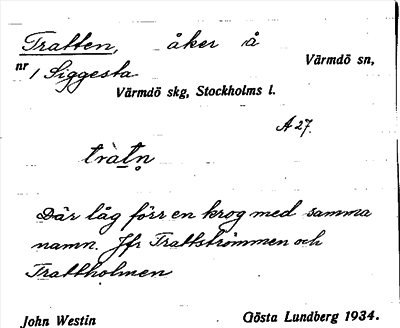 Tratten, åker å Värmdö sn,
nr 1 Siggesta
Värmdö skg, Stockholms l.
A 27.
tràtn̥
Där låg förr en krog med samma
namn. Jfr Trattströmmen och
Trattholmen
John Westin Gösta Lundberg 1934.